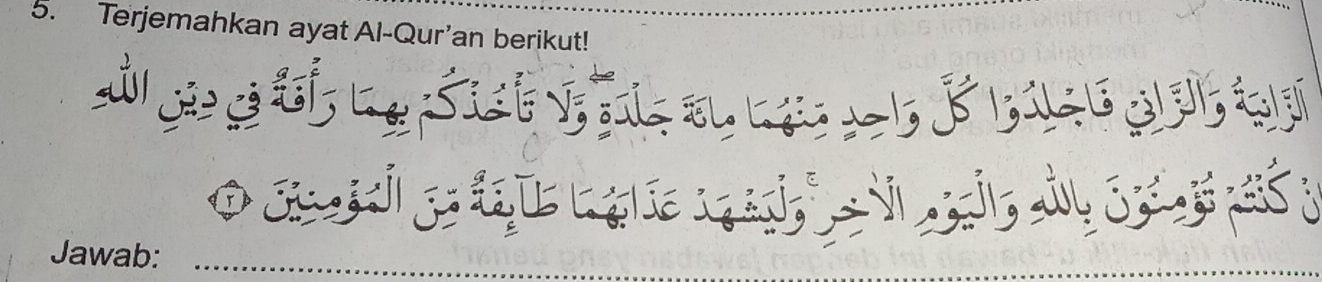 5. Terjemahkan ayat Al-Qur'an berikut!
اَلزَّانِيَةُ وَالزَّانِيْ فَاجْلِدُوْا كُلَّ وَاحِدٍ مِّنْهُمَا مِائَةَ جَلْدَةٍ ۖ وَّلَا تَأْخُذْكُمْ بِهِمَا رَأْفَةٌ فِيْ دِيْنِ اللّٰهِ
اِنْ كُنْتُمْ تُؤْمِنُوْنَ بِاللّٰهِ وَالْيَوْمِ الْاٰخِرِ ۚ وَلْيَشْهَدْ عَذَابَهُمَا طَاۤىِٕفَةٌ مِّنَ الْمُؤْمِنِيْنَ ﴿٢﴾
Jawab: